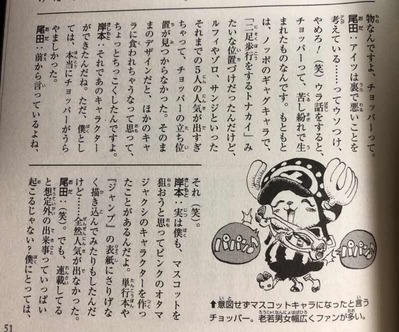 物なんですよ、チョッパーって。
尾田：アイツは裏で悪いことを
考えている……ってウソつけ、
やめろ！（笑）ウラ話をすると、
チョッパーって、苦し紛れで生
まれたものなんです。もともと
は、ノッポのギャグキャラで、
「二足歩行をするトナカイ」み
たいな位置づけだったんだけど、
ルフィやゾロ、サンジといった
それまでの５人の人気が出すぎ
ちゃって、チョッパーの立ち位
置が見つからなかった。そのま
まのデザインだと、ほかのキャ
ラに食われちゃうなって思って、
ちょっとちっこくしたんですよ。
岸本：それであのキャラクター
ができたんだね。ただ、僕とし
ては、本当にチョッパーがうら
やましかった。
尾田：前から言っているよね、
それ（笑）。
岸本：実は僕も、マスコットを
狙おうと思ってピンクのオタマ
ジャクシのキャラクターを作っ
たことがあるんだよ。単行本や
『ジャンプ』の表紙にさりげな
く描き込んでみたりもしたんだ
けど……全然人気が出なかった。
尾田：（笑）。でも、連載してる
と想定外の出来事っていっぱい
起こるじゃない？僕にとっては、
↑意図せずマスコットキャラになったと言う
チョッパー。老若男女幅広くファンが多い。
51